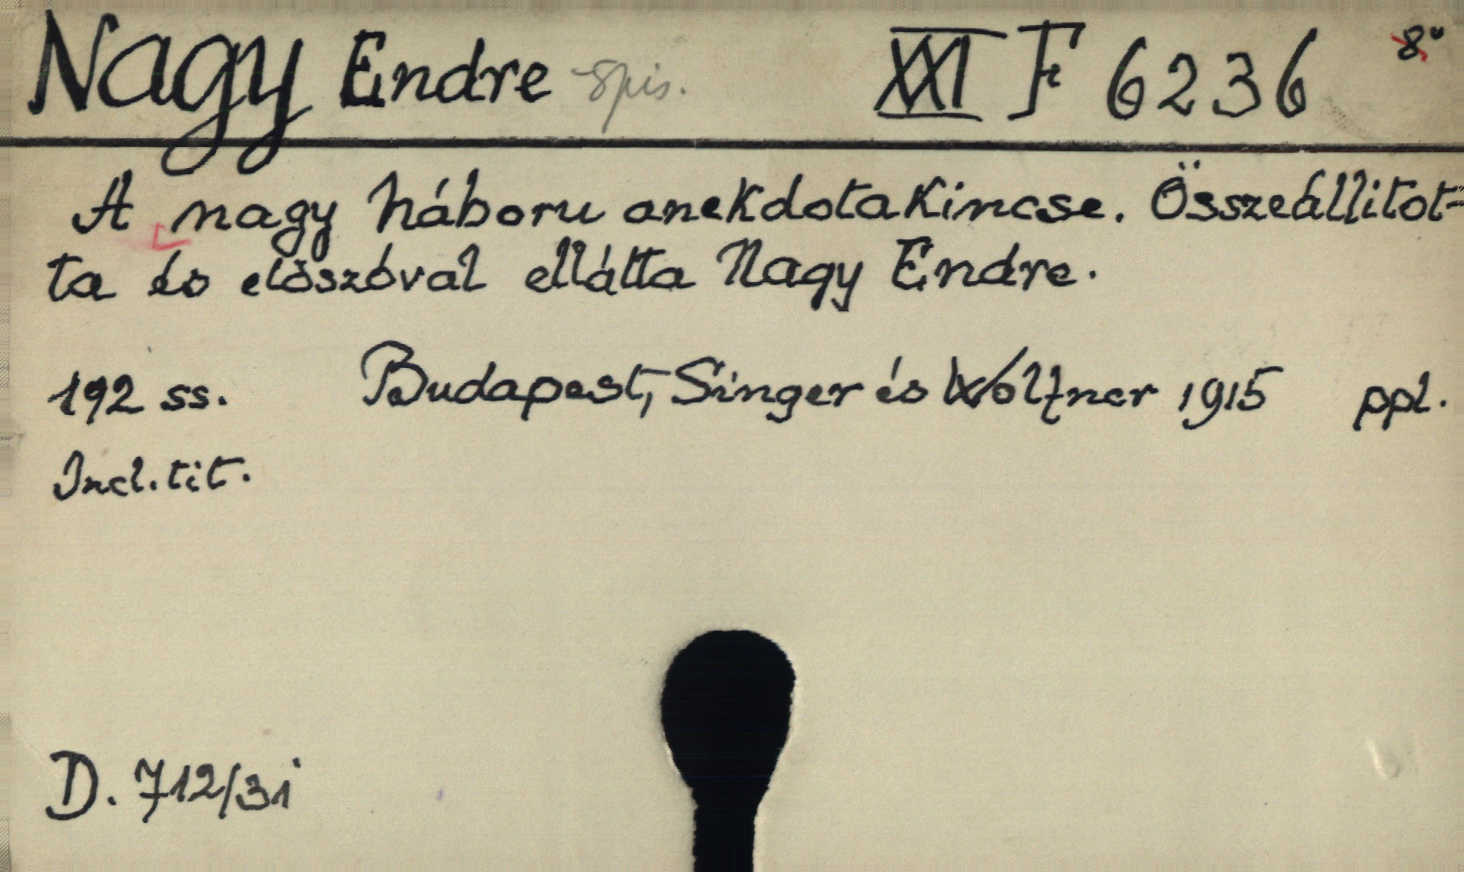 Nagy Endre spis. XXI F 6236 8°
A nagy háboru anekdotakincse. Összeállitot-
ta és előszóval ellátta Nagy Endre.
192 ss. Budapest, Singer és Wolfner 1915 ppl.
Incl. tit.
D. 712/31